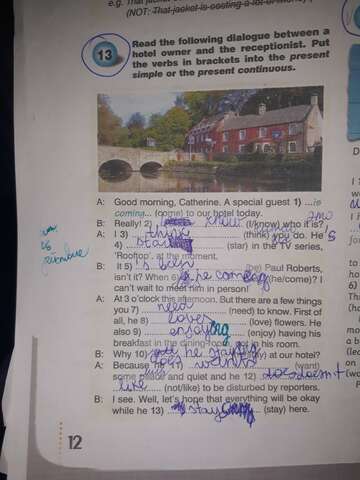 e.g.
(NOT: That jacket is costing a lot of money.)
13 Read the following dialogue between a
hotel owner and the receptionist. Put
the verbs in brackets into the present
simple or the present continuous.
A: Good morning, Catherine. A special guest 1) ...is
coming... (come) to our hotel today.
B: Really! 2) know (I/know) who it is?
A: I 3) think (think) you do. He's
4) (star) in the TV series,
'Rooftop', at the moment.
B: It 5) (be) Paul Roberts,
isn't it? When 6) he coming (he/come)? I
can't wait to meet him in person!
A: At 3 o'clock this afternoon. But there are a few things
you 7) need (need) to know. First of
all, he 8) loves (love) flowers. He
also 9) enjoying (enjoy) having his
breakfast in the dining-room, not in his room.
B: Why 10) he (stay) at our hotel?
A: Because he 11) wants (want)
some peace and quiet and he 12) doesn't
like (not/like) to be disturbed by reporters.
B: I see. Well, let's hope that everything will be okay
while he 13) (stay) here.
12